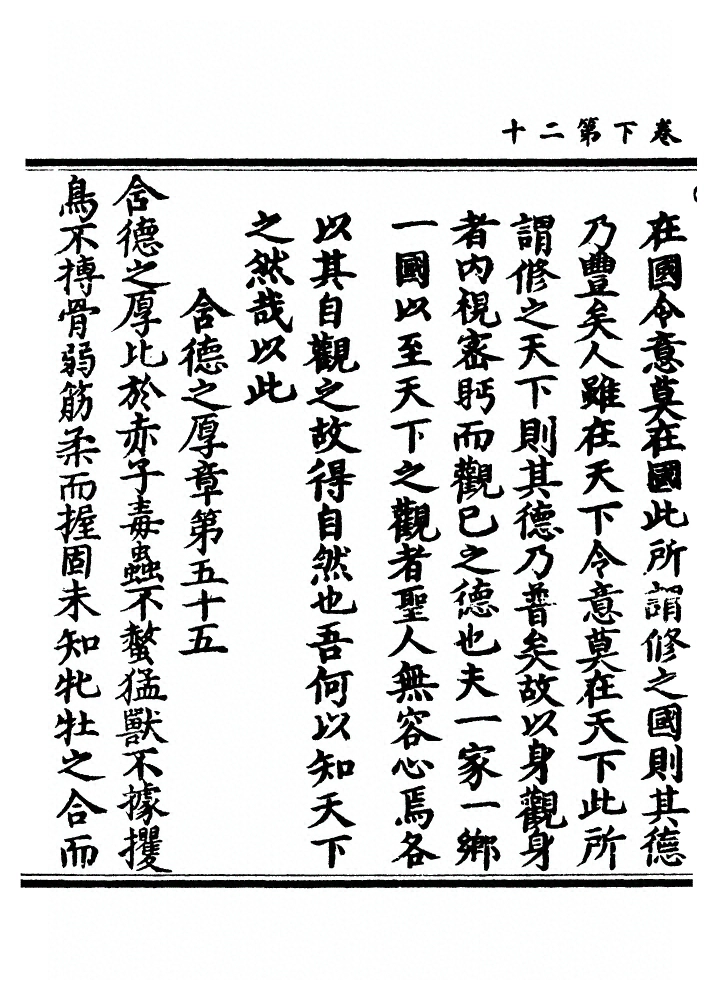 卷下第二十
在國令意莫在國此所謂修之國則其德
乃豐矣人雖在天下令意莫在天下此所
謂修之天下則其德乃普矣故以身觀身
者内視密眄而觀已之德也夫一家一鄉
一國以至天下之觀者聖人無容心焉各
以其自觀之故得自然也吾何以知天下
之然哉以此
含德之厚章第五十五
含德之厚比於赤子毒蟲不螫猛獸不據攫
鳥不搏骨弱筋柔而握固未知牝牡之合而